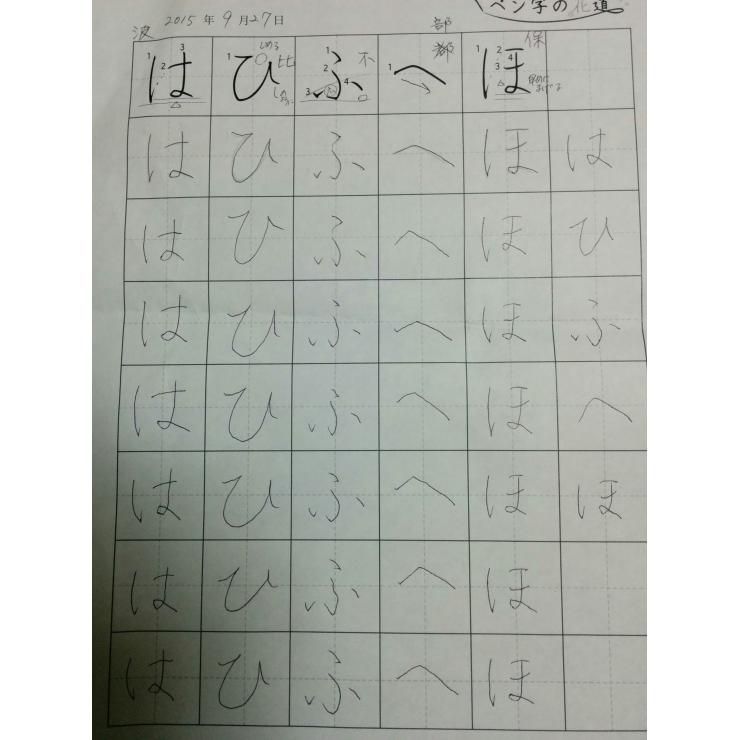 ペン字の花道
波 2015年9月27日 部
都 保
1 2 3 は 1 ひ しめる 比 1 2 3 4 ふ 不 1 へ 1 2 3 4 ほ
は ひ ふ へ ほ は
は ひ ふ へ ほ ひ
は ひ ふ へ ほ ふ
は ひ ふ へ ほ へ
は ひ ふ へ ほ ほ
は ひ ふ へ ほ
は ひ ふ へ ほ